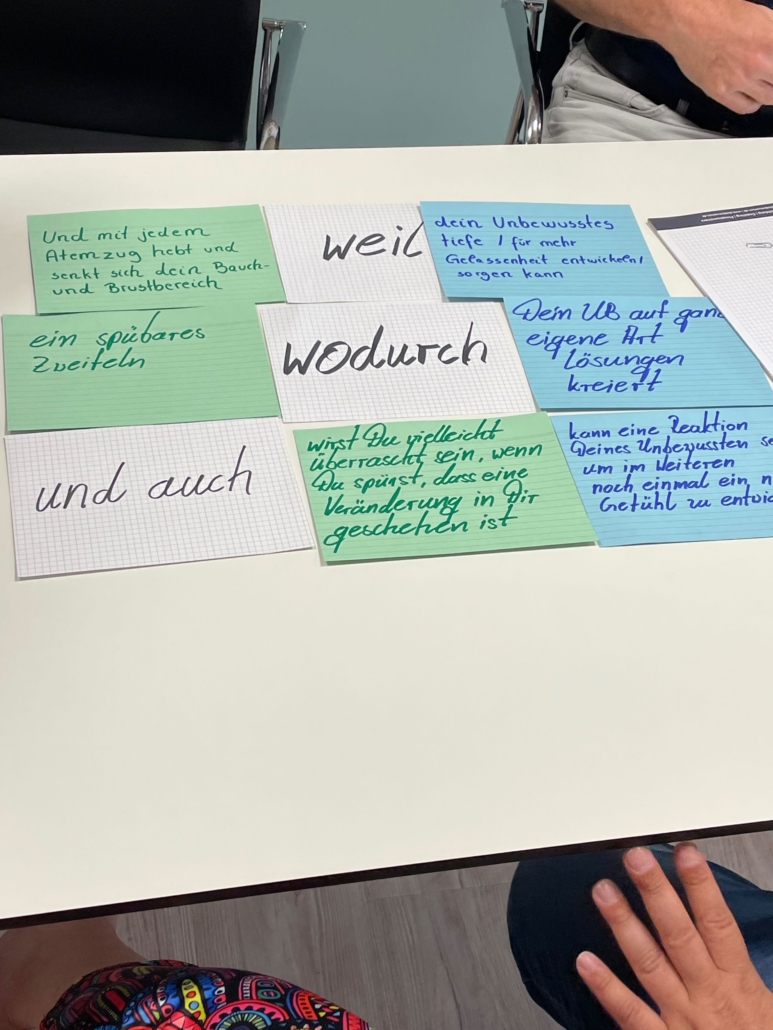 Und mit jedem
Atemzug hebt und
senkt sich dein Bauch-
und Brustbereich
weil
dein Unbewusstes
tiefe / für mehr
Gelassenheit entwickeln/
sorgen kann
ein spübares
Zweifeln
wodurch
Dein UB auf
eigene Art
Lösungen
kreiert
und auch
wirst Du vielleicht
überrascht sein, wenn
Du spürst, dass eine
Veränderung in Dir
geschehen ist
kann eine Reaktion
Deines Unbewussten
um im Weiteren
noch einmal ein
Gefühl zu